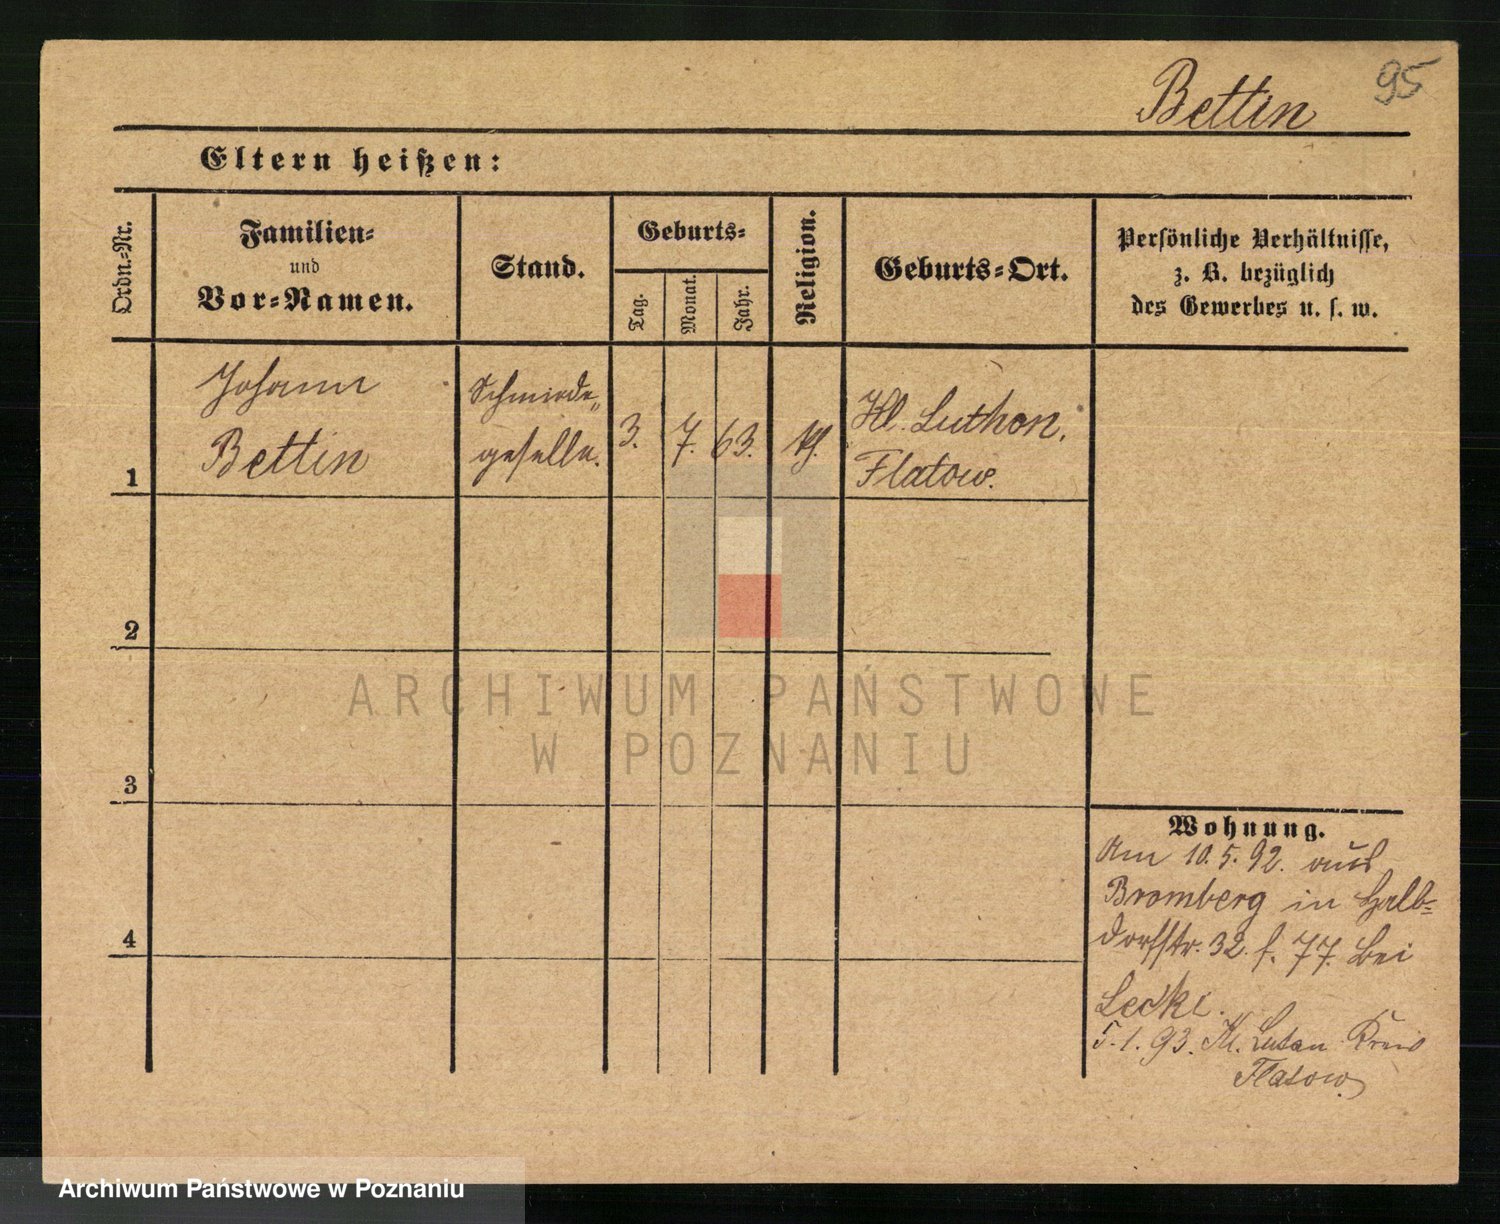 Bettin 95
Eltern heißen:
Ordn.-Nr.
Familien-
und
Vor-Namen.
Stand.
Geburts-
Tag.
Monat.
Jahr.
Religion.
Geburts-Ort.
Persönliche Verhältnisse,
z. B. bezüglich
des Gewerbes u. s. w.
Johann
Bettin
Schmiede-
geselle.
3. 7. 63.
Kl. Luthon.
Flatow.
1
2
3
4
Wohnung.
Am 10.5.92. aus
Bromberg in Halb-
dorfstr. 32. f. 77. bei
5.1.93. Kl. Lutau Kreis
Flatow.
ARCHIWUM PAŃSTWOWE
W POZNANIU
Archiwum Państwowe w Poznaniu